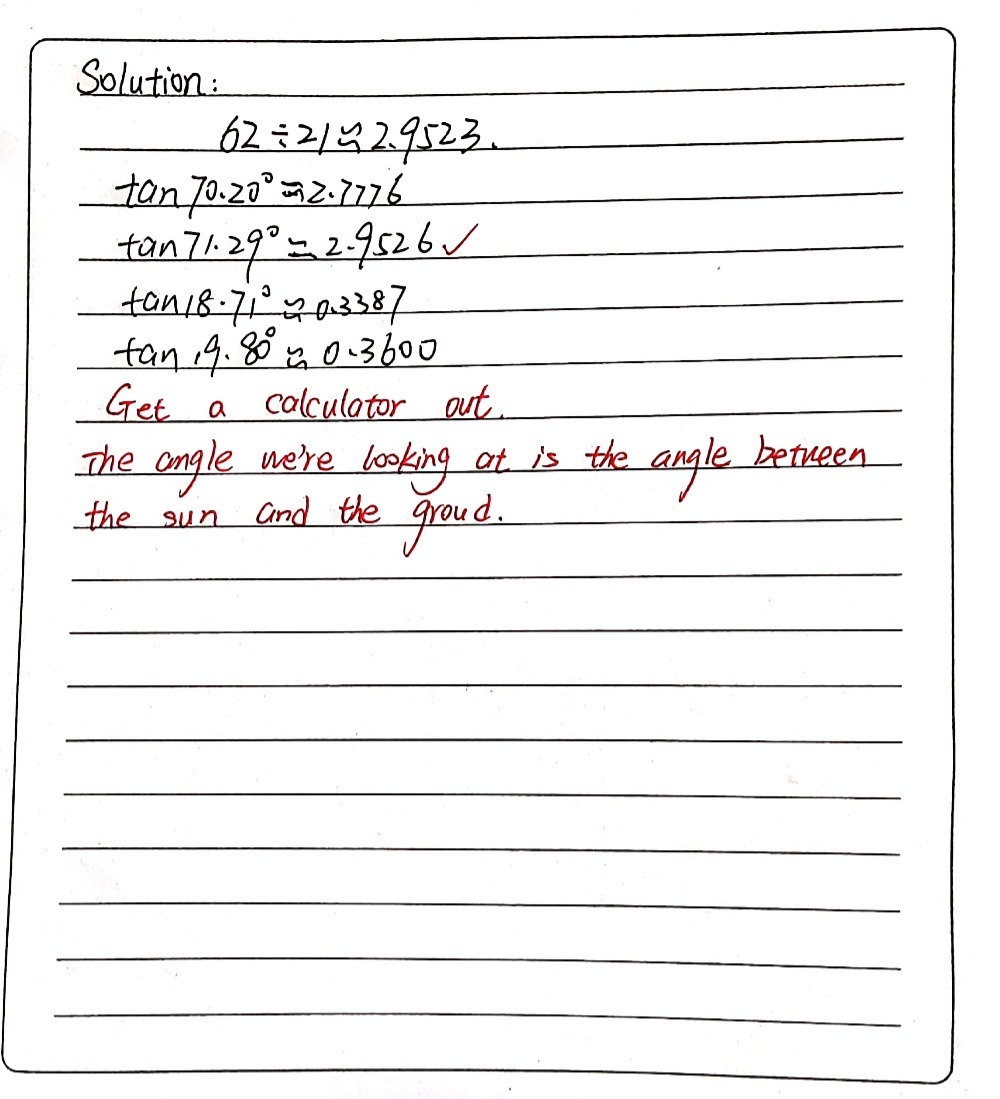 Solution:
62÷21≈2.9523.
tan 70.20°≈2.7776
tan 71.29°≈2.9526✓
tan 18.71°≈0.3387
tan 19.80°≈0.3600
Get a calculator out.
The angle we're looking at is the angle between
the sun and the groud.